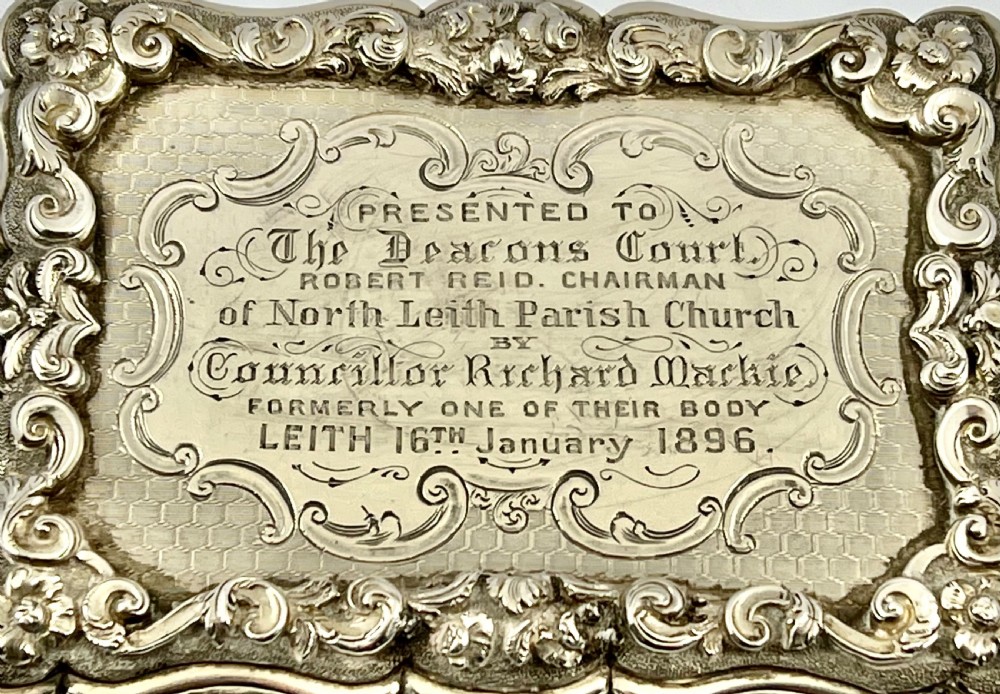 PRESENTED TO
The Deacons Court.
ROBERT REID. CHAIRMAN
of North Leith Parish Church
BY
Councillor Richard Mackie
FORMERLY ONE OF THEIR BODY
LEITH 16TH January 1896.